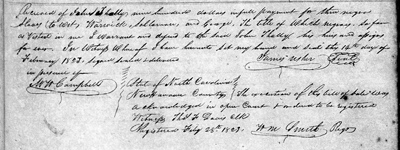 Received of John S Kelly nine hundred dollars in full payment for three negro
slaves (to wit) Warwick, Solloman, and George. The title of which negroes, so far
as vested in me I warrant and defend to the said John his heirs and assigns
for ever. In Witness Whereof I have hereunto set my hand and seal this 14th day of
February 1823. Signed sealed & delivered James Usher Seal
in presence of
M. W. Campbell State of North Carolina
New Hanover County The execution of the bill of sale was
acknowledged in open Court & ordered to be registered
Witness Thos F Davis Clk
Registered Feby 25th 1823. Wm Smith Regr